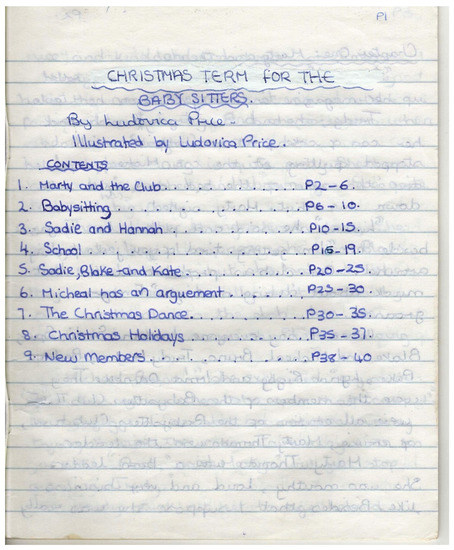 P1
CHRISTMAS TERM FOR THE
BABY SITTERS.
By Ludovica Price.
Illustrated by Ludovica Price.
CONTENTS
1. Marty and the Club. . . . . . . . . . . . . P2-6.
2. Babysitting . . . . . . . . . . . . . P6-10.
3. Sadie and Hannah . . . . . . . . . . . P10-15.
4. School . . . . . . . . . . . . . . . P15-19.
5. Sadie, Blake and Kate . . . . . . . . . P20-25.
6. Micheal has an arguement . . . . . . . P25-30.
7. The Christmas Dance . . . . . . . . . P30-35.
8. Christmas Holidays . . . . . . . . . P35-37.
9. New Members . . . . . . . . . . . . P38-40